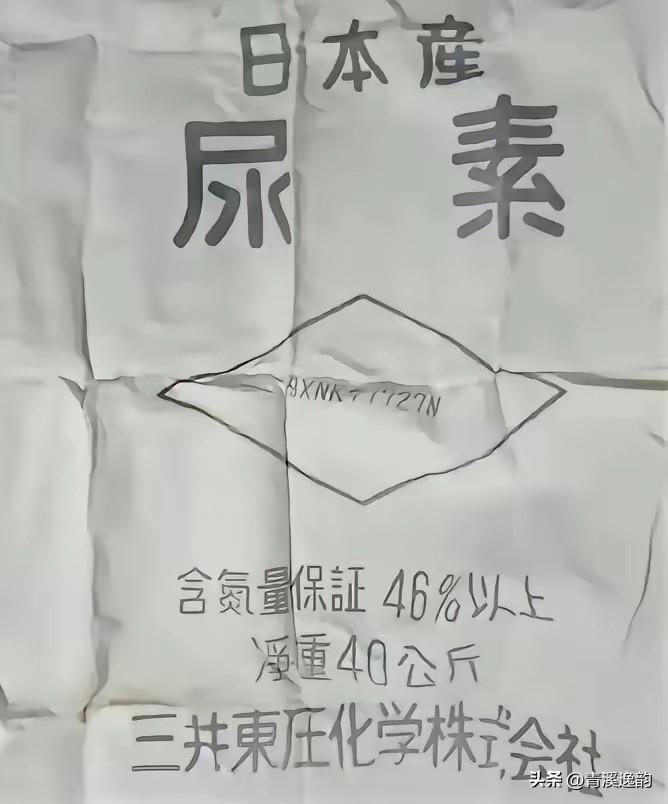 日本産
尿素
含氮量保証 46%以上
凈重40公斤
三井東圧化学株式会社
头条 @青溪逸韵